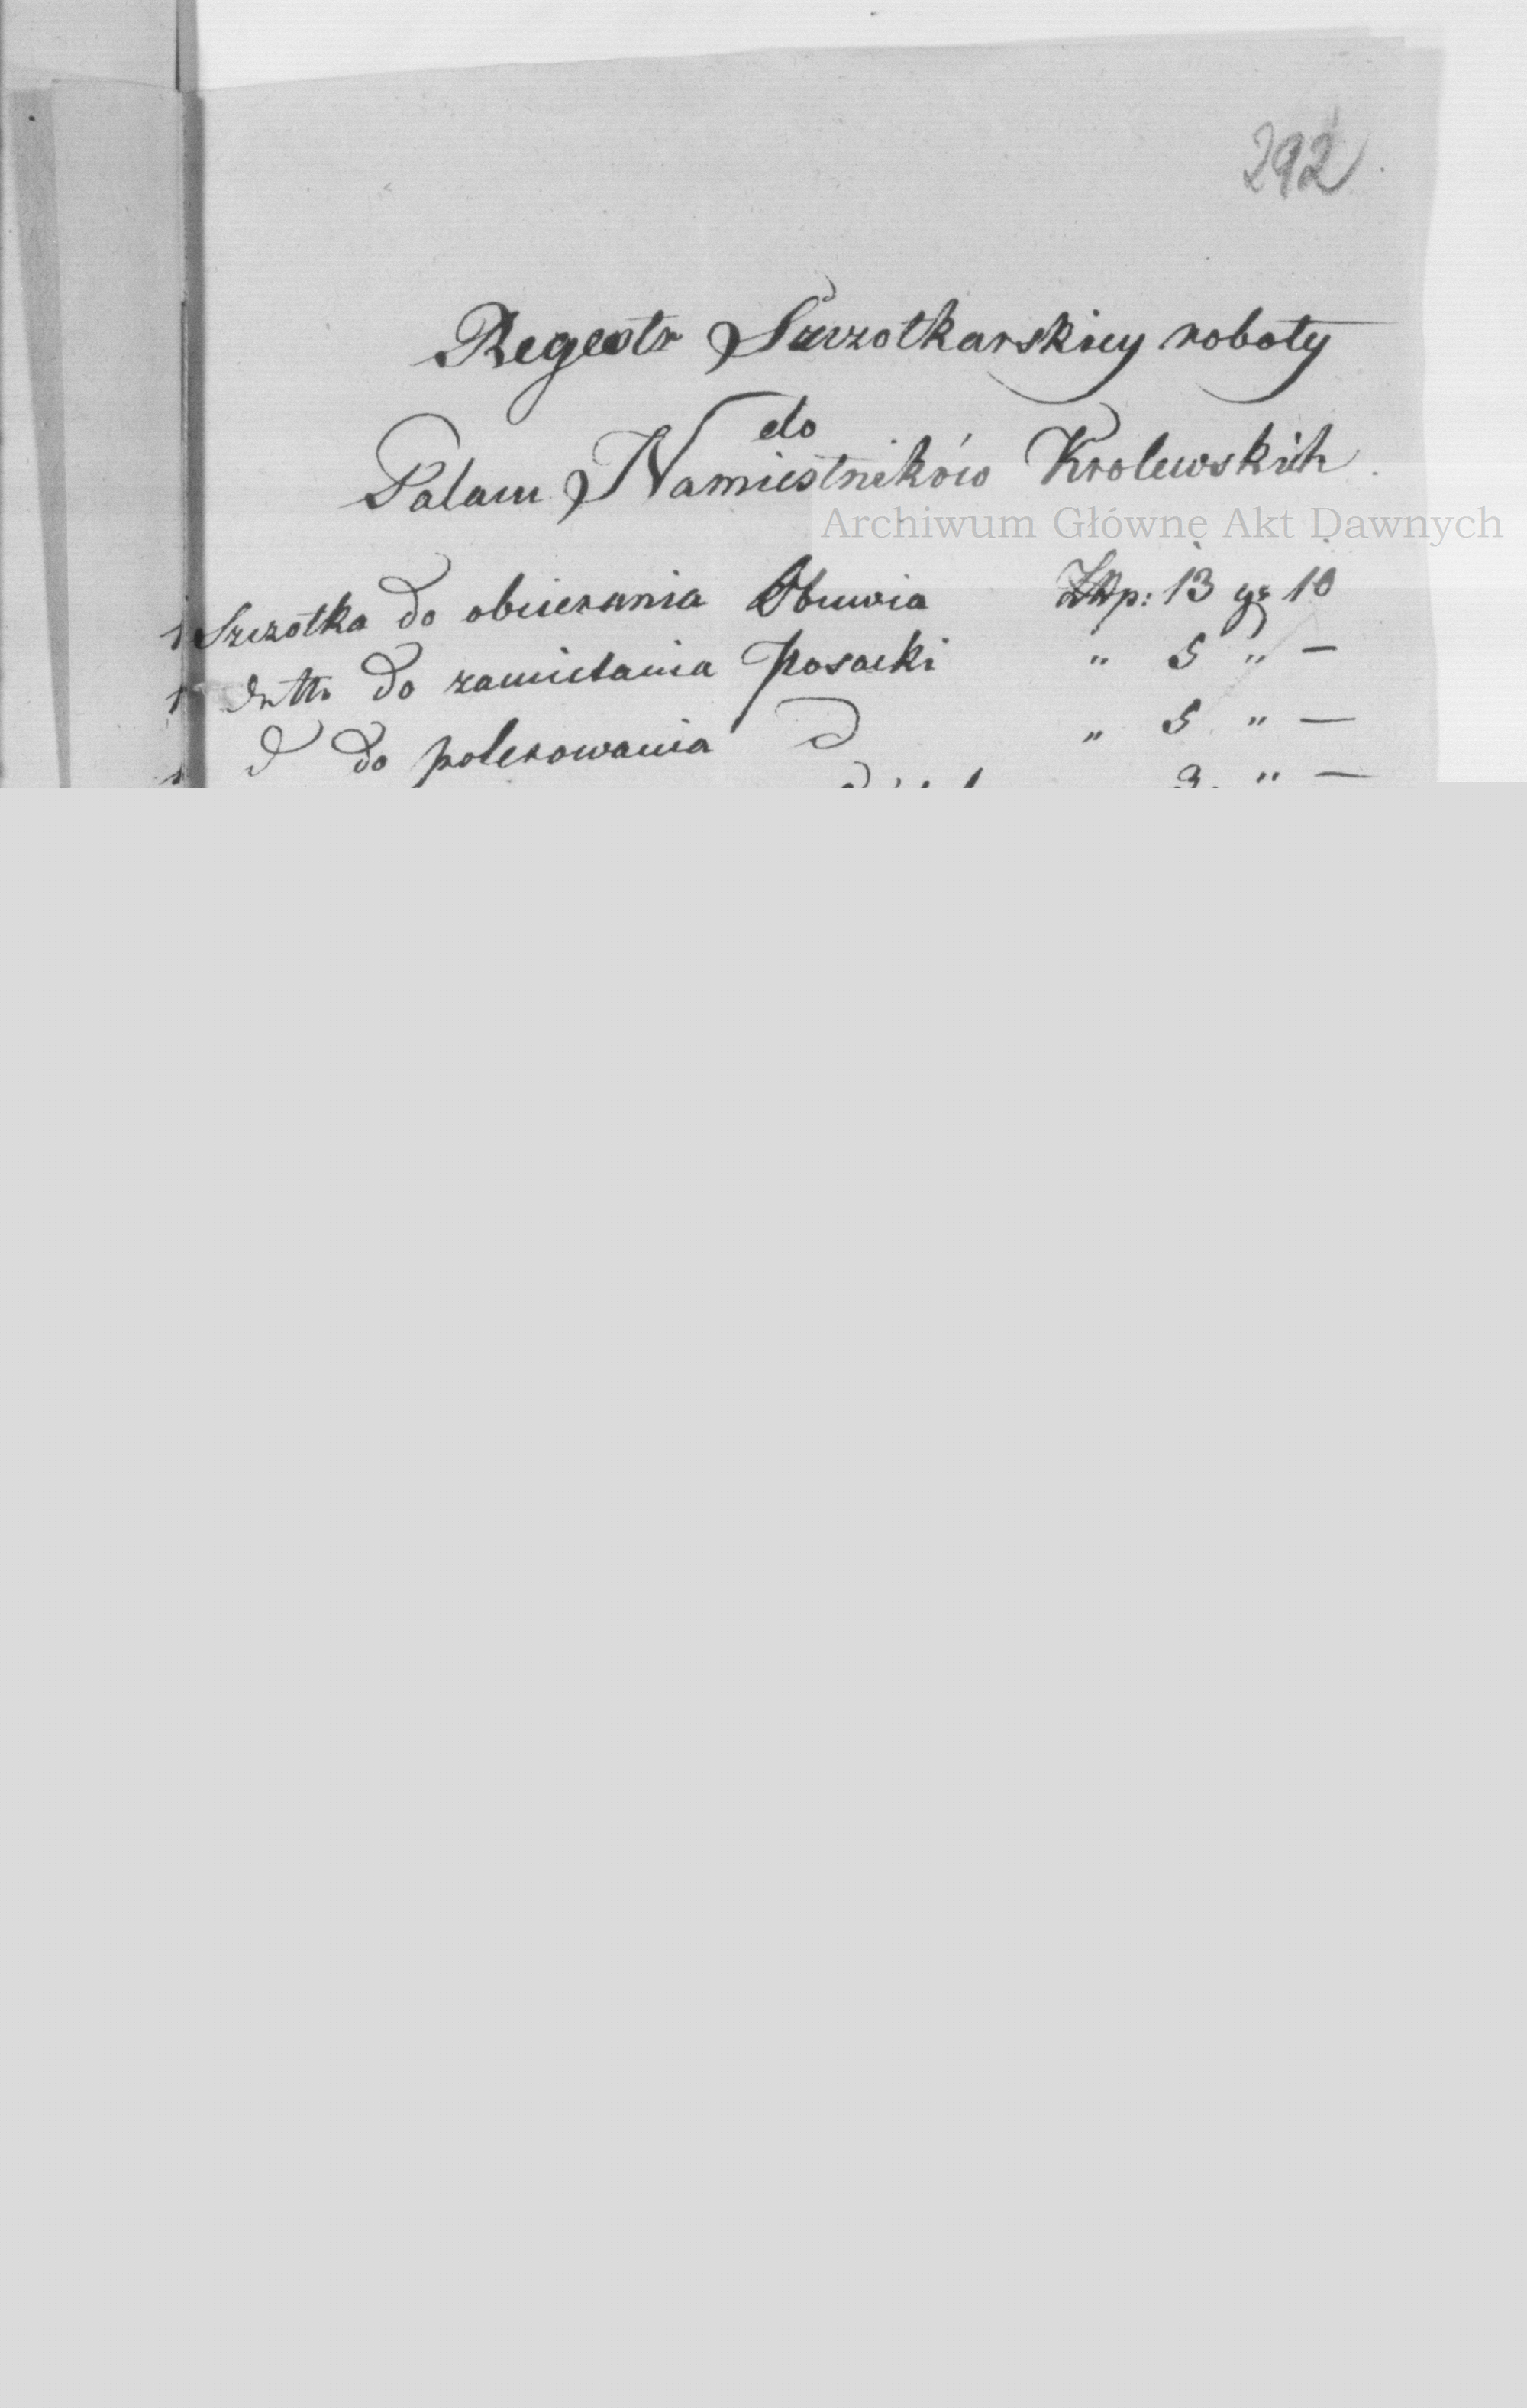 292
Regestr Szczotkarskiey roboty
do
Palacu Namiestników Krolewskich
Archiwum Główne Akt Dawnych
1 Szczotka do obcierania Obuwia Złp: 13 gr 10
1 dtto do zamiatania Posacki " 5 " —
1 d do polerowania d " 5 " —